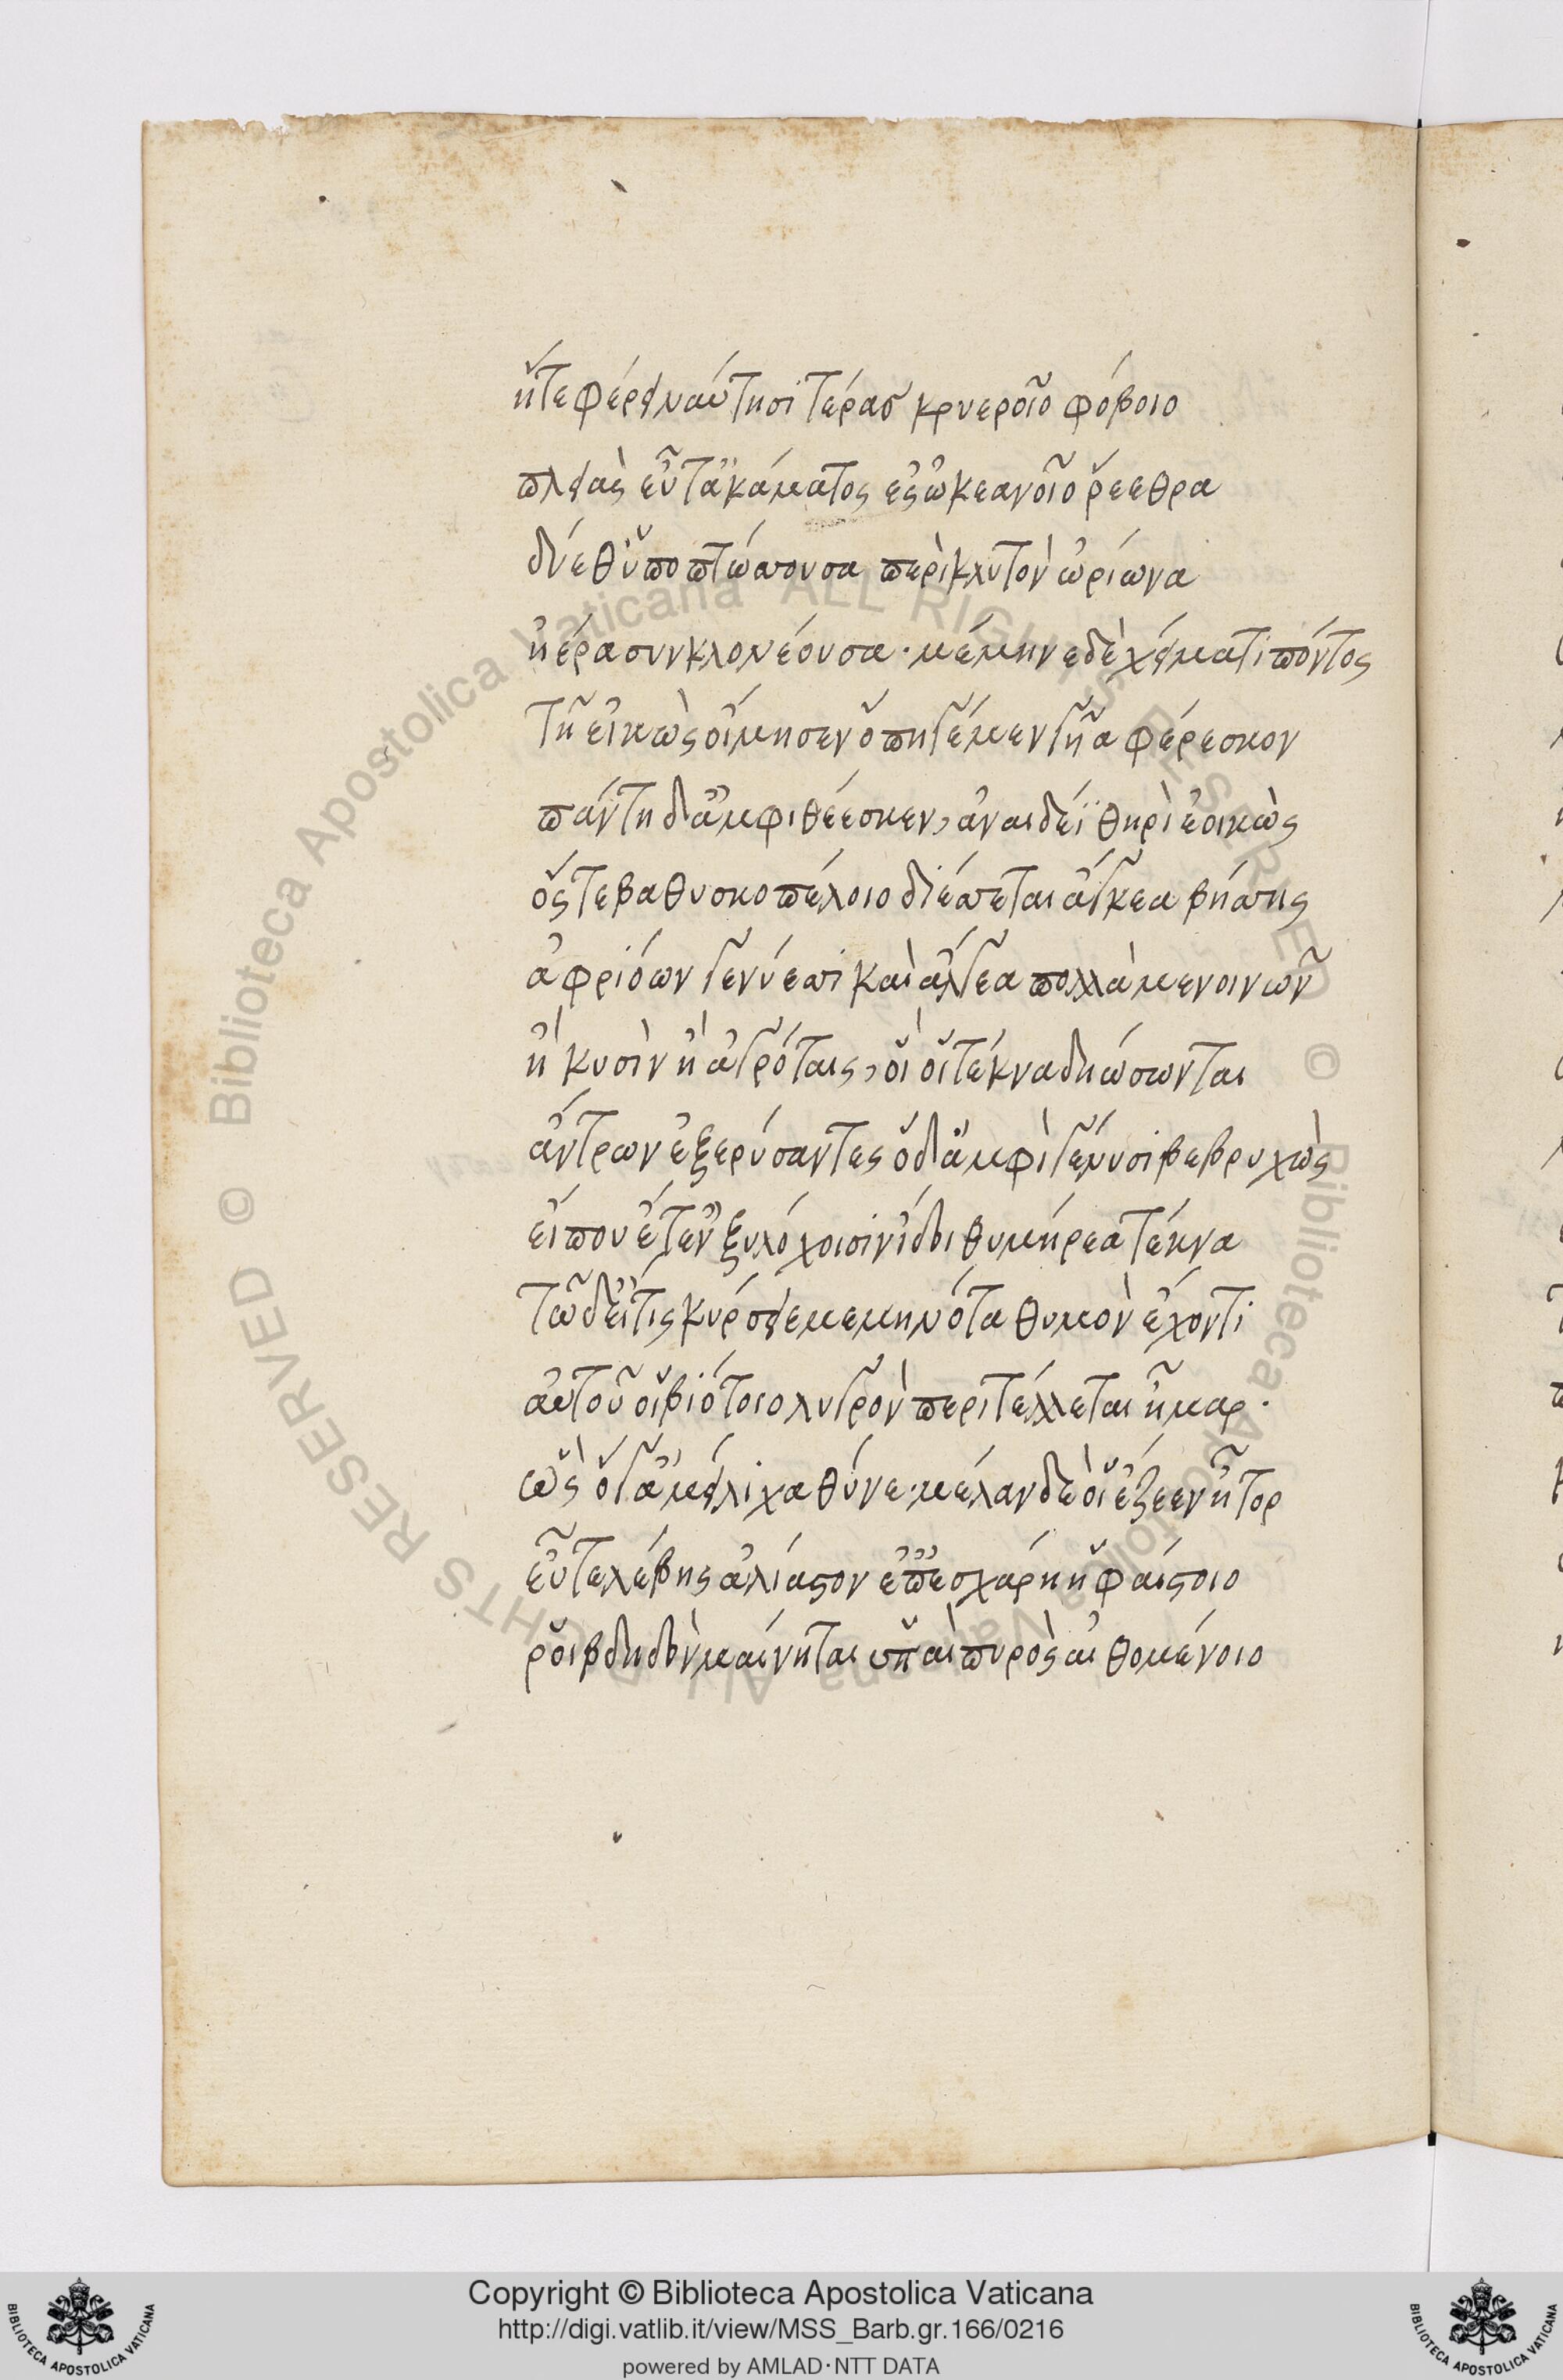 ἥτε φέρει ναύτησι τέρας κρυεροῖο φόβοιο
πλειὰς εὖτ' ἀκάματος ἐς ὠκεανοῖο ῥέεθρα
δύεθ' ὑποπτώσσουσα περικλυτὸν ὠρίωνα
ἠέρα συνκλονέουσα· μέμηνε δὲ χείματι πόντος
τῆ εἰκὼς οἴμησεν ὅπη γέ μεν γυῖα φέρεσκον
πάντη δ' ἀμφιθέεσκεν, ἀναιδέϊ θηρὶ ἐοικὼς
ὅς τε βαθυσκοπέλοιο διέσσεται ἄγκεα βήσσης
ἀφριόων γενύεσσι καὶ ἄλγεα πολλὰ μενοινῶν
ἢ κυσὶν ἢ ἀγρόταις, οἵ οἱ τέκνα δηώσωνται
ἄντρων ἐξερύσαντες ὃ δ' ἀμφὶ γένυσι βεβρυχὼς
εἴ που ἔτ' ἐν ξυλόχοισιν ἴδοι θυμήρεα τέκνα
τῶ δ' εἴ τις κύρσει μεμηνότα θυμὸν ἔχοντι
αὐτοῦ οἱ βιότοιο λυγρὸν περιτέλλεται ἦμαρ·
ὣς ὅγ' ἀμείλιχα θῦνε· μέλαν δέ οἱ ἔζεεν ἦτορ
εὖτε λέβης ἀλίαστον ἐπ' ἐσχάρη ἡφαίστοιο
ῥοιβδηδὸν μαίνηται ὑπαὶ πυρὸς αἰθομένοιο
© Biblioteca Apostolica Vaticana ALL RIGHTS RESERVED © Biblioteca Apostolica Vaticana ALL RIGHTS RESERVED
Copyright © Biblioteca Apostolica Vaticana
http://digi.vatlib.it/view/MSS_Barb.gr.166/0216
powered by AMLAD·NTT DATA
BIBLIOTECA APOSTOLICA VATICANA
BIBLIOTECA APOSTOLICA VATICANA